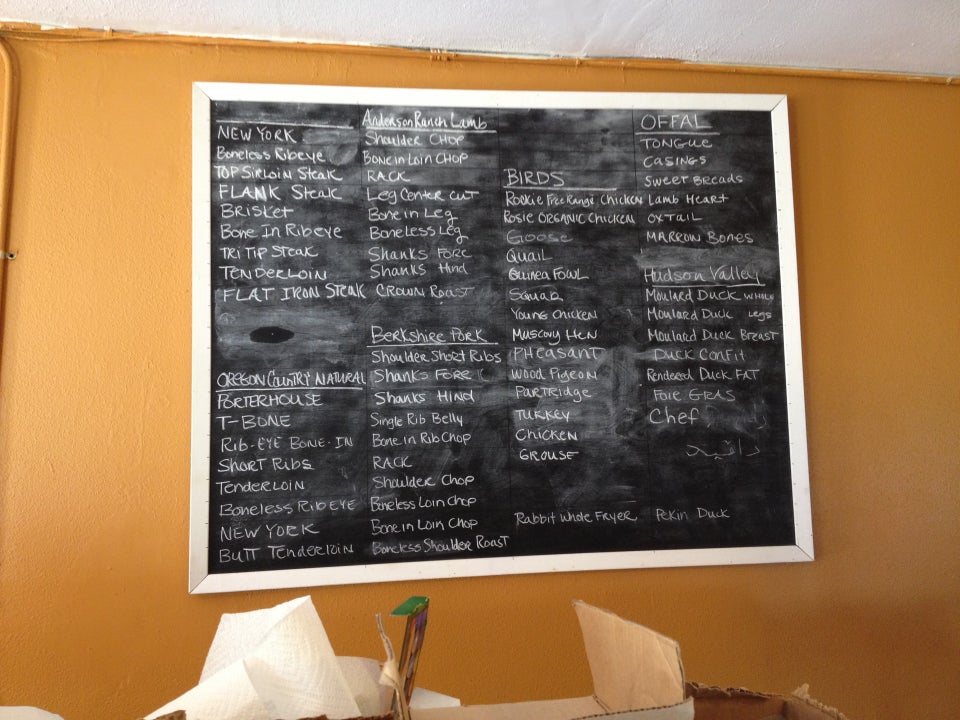 NEW YORK
Boneless Ribeye
TOP SIRLOIN STEAK
FLANK STEAK
BRISKET
Bone In Ribeye
TRI TIP STEAK
TENDERLOIN
FLAT IRON STEAK
OREGON COUNTRY NATURAL
PORTERHOUSE
T-BONE
RIB-EYE BONE-IN
SHORT RIBS
Tenderloin
Boneless RIBEYE
NEW YORK
BUTT Tenderloin
Anderson Ranch Lamb
Shoulder CHOP
BONE in Loin CHOP
RACK
Leg CENTER CUT
Bone in Leg
Boneless Leg
Shanks FORE
Shanks Hind
CROWN ROAST
Berkshire Pork
Shoulder Short Ribs
Shanks FORE
Shanks Hind
Single Rib Belly
Bone in Rib Chop
RACK
Shoulder Chop
Boneless Loin Chop
Bone in Loin Chop
Boneless Shoulder Roast
BIRDS
Rookie Free Range Chicken
Rosie ORGANIC Chicken
GOOSE
QUAIL
Guinea FOWL
SQUAB
Young Chicken
Muscovy Hen
PHEASANT
WOOD Pigeon
PARTRIDGE
TURKEY
CHICKEN
GROUSE
Rabbit Whole Fryer
OFFAL
TONGUE
CASINGS
SWEET BREADS
Lamb HEART
OXTAIL
MARROW BONES
Hudson Valley
Moulard Duck WHOLE
Moulard Duck Legs
Moulard Duck Breast
Duck Confit
Rendered Duck FAT
FOIE GRAS
Chef
Pekin Duck